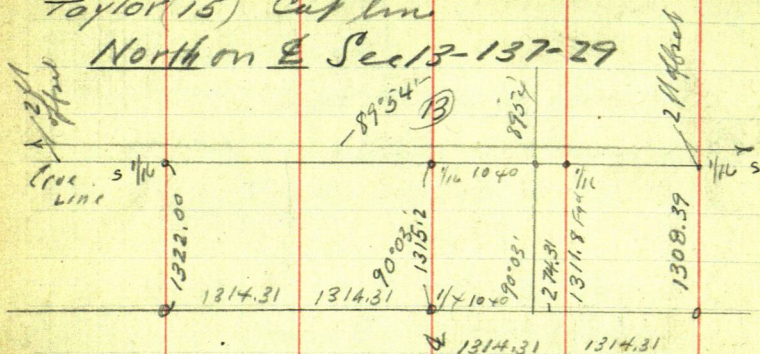 Taylor (15) Cut line
North on ℄ Sec 13-137-29
2 ft offset
-89°54'-
B
89°54'
2 ft offset
True Line
S 1/16
1/16 1040
1/16
1/16 S
1322.00
90°03'
1315.2
90°03'
-274.31
1311.8
1308.39
1314.31
1314.31
1/4 1040
1314.31
1314.31